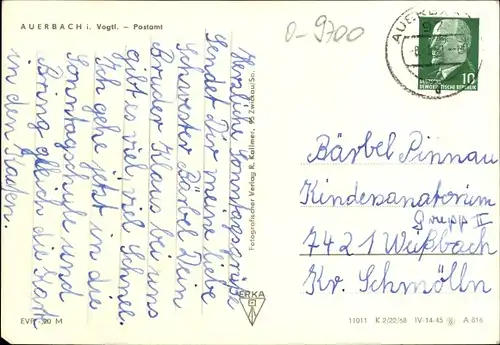 AUERBACH i. Vogtl. – Postamt
0-9700
AUERBA
10
DEUTSCHE
DEMOKRATISCHE REPUBLIK
Herzliche Sonntagsgrüße
sendet Dir meine liebe
Schwester Bärbel Dein
Bruder Klaus bei uns
gibt es viel viel Schnee.
Ich gehe jetzt in die
Sonntagschule und
Bring gleich die Karte
in den Kasten.
Fotografischer Verlag R. Kallmer, 95 Zwickau/Sa.
Bärbel Pinnau
Kindersanatorium
Grupp II
7421 Wußbach
Kr. Schmölln
ERKA
EVP: 20 M
11011 K 2/22/68 IV-14-45 A 816